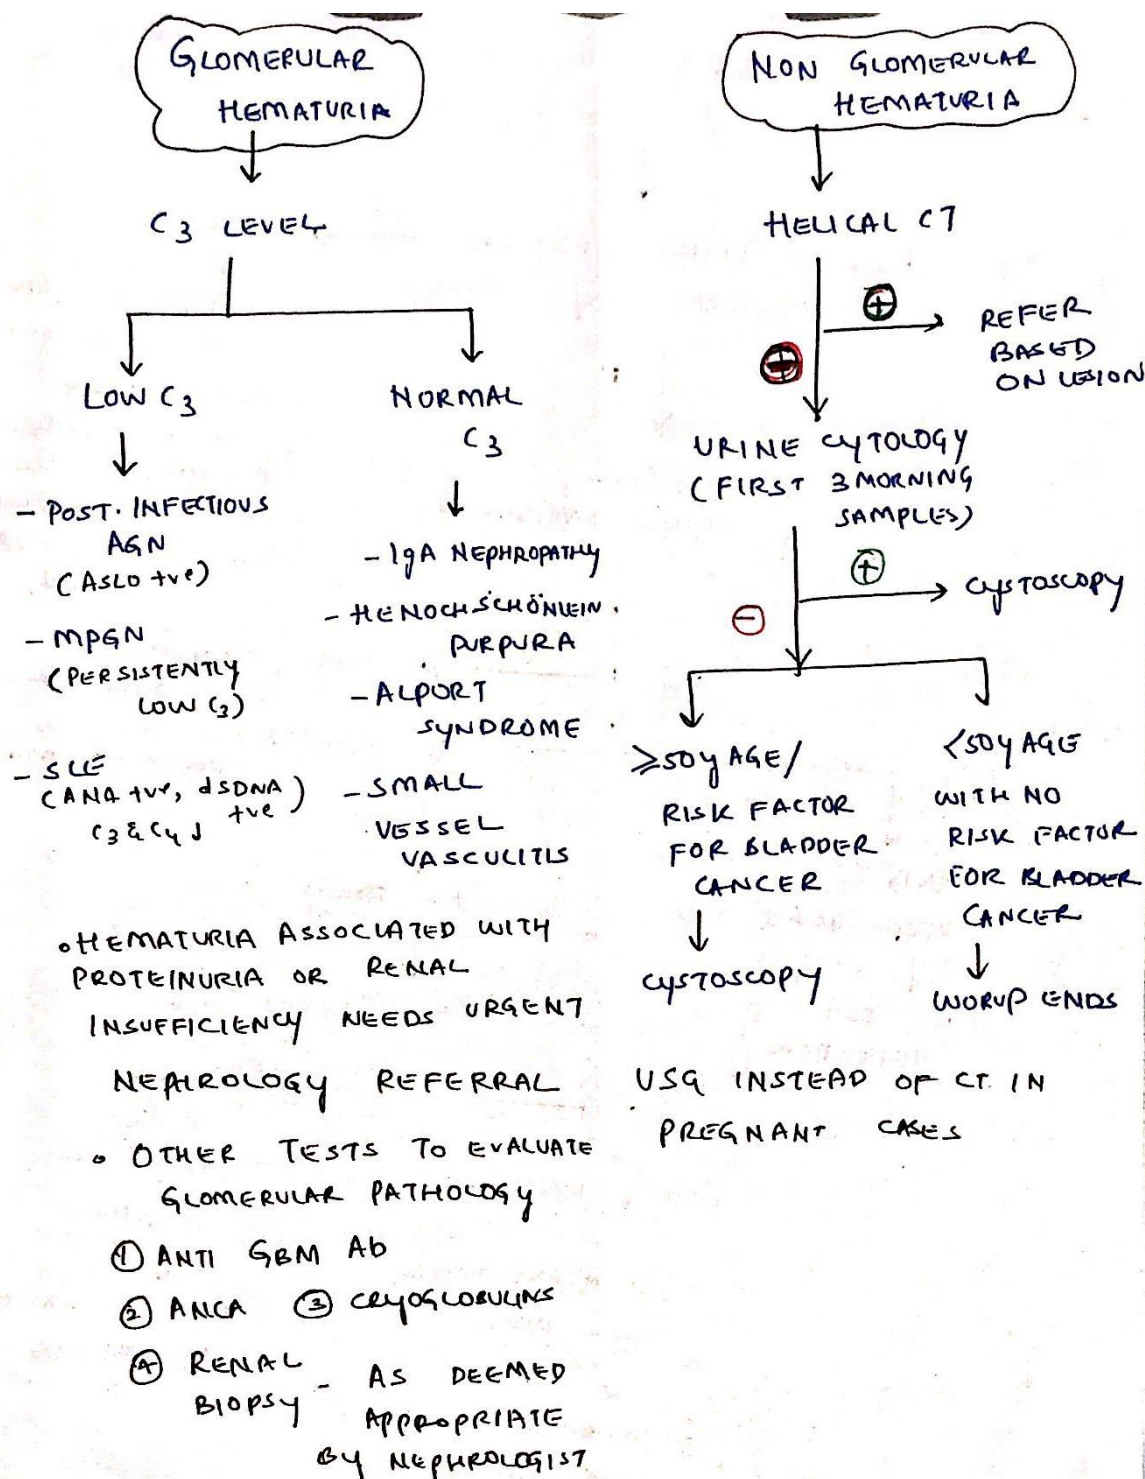 GLOMERULAR
HEMATURIA
C3 LEVEL
LOW C3
- POST. INFECTIOUS
AGN
(ASLO +ve)
- MPGN
(PERSISTENTLY
LOW C3)
- SLE
(ANA +ve, dSDNA +ve)
C3 & C4 ↓
NORMAL
C3
- IgA NEPHROPATHY
- HENOCH SCHÖNLEIN
PURPURA
- ALPORT
SYNDROME
- SMALL
VESSEL
VASCULITIS
• HEMATURIA ASSOCIATED WITH
PROTEINURIA OR RENAL
INSUFFICIENCY NEEDS URGENT
NEPHROLOGY REFERRAL
• OTHER TESTS TO EVALUATE
GLOMERULAR PATHOLOGY
① ANTI GBM Ab
② ANCA ③ CRYOGLOBULINS
④ RENAL
BIOPSY - AS DEEMED
APPROPRIATE
BY NEPHROLOGIST
NON GLOMERULAR
HEMATURIA
HELICAL CT
⊕
REFER
BASED
ON LESION
⊖
URINE CYTOLOGY
(FIRST 3 MORNING
SAMPLES)
⊕
CYSTOSCOPY
⊖
≥50y AGE/
RISK FACTOR
FOR BLADDER
CANCER
CYSTOSCOPY
<50y AGE
WITH NO
RISK FACTOR
FOR BLADDER
CANCER
WORUP ENDS
USG INSTEAD OF CT IN
PREGNANT CASES